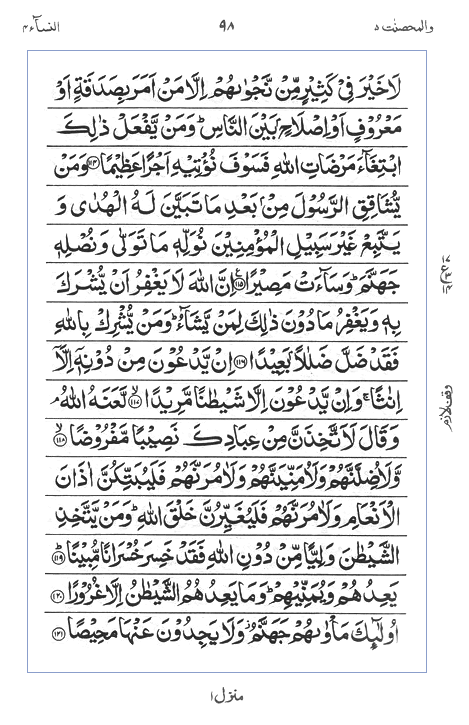 والمحصنٰت ٥ ٩٨ النسآء ٤
لَا خَيْرَ فِىْ كَثِيْرٍ مِّنْ نَّجْوٰىهُمْ اِلَّا مَنْ اَمَرَ بِصَدَقَةٍ اَوْ
مَعْرُوْفٍ اَوْ اِصْلَاحٍۭ بَيْنَ النَّاسِ ؕ وَمَنْ يَّفْعَلْ ذٰلِكَ
ابْتِغَآءَ مَرْضَاتِ اللّٰهِ فَسَوْفَ نُؤْتِيْهِ اَجْرًا عَظِيْمًا ﴿۱۱۴﴾ وَمَنْ
يُّشَاقِقِ الرَّسُوْلَ مِنْۢ بَعْدِ مَا تَبَيَّنَ لَـهُ الْهُدٰى وَ
يَـتَّبِعْ غَيْرَ سَبِيْلِ الْمُؤْمِنِيْنَ نُوَلِّهٖ مَا تَوَلّٰى وَ نُصْلِهٖ
جَهَنَّمَ ؕ وَسَآءَتْ مَصِيْرًا ﴿۱۱۵﴾ اِنَّ اللّٰهَ لَا يَغْفِرُ اَنْ يُّشْرَكَ
بِهٖ وَيَغْفِرُ مَا دُوْنَ ذٰلِكَ لِمَنْ يَّشَآءُ ؕ وَمَنْ يُّشْرِكْ بِاللّٰهِ
فَقَدْ ضَلَّ ضَلٰلًاۢ بَعِيْدًا ﴿۱۱۶﴾ اِنْ يَّدْعُوْنَ مِنْ دُوْنِهٖۤ اِلَّاۤ
اِنٰـثًـا ۚ وَاِنْ يَّدْعُوْنَ اِلَّا شَيْطٰنًا مَّرِيْدًا ﴿۱۱۷﴾ لَّعَنَهُ اللّٰهُ ۘ
وَقَالَ لَاَتَّخِذَنَّ مِنْ عِبَادِكَ نَصِيْبًا مَّفْرُوْضًا ﴿۱۱۸﴾
وَّلَاُضِلَّنَّهُمْ وَلَاُمَنِّيَنَّهُمْ وَلَاٰمُرَنَّهُمْ فَلَيُبَـتِّكُنَّ اٰذَانَ
الْاَنْعَامِ وَلَاٰمُرَنَّهُمْ فَلَيُغَيِّرُنَّ خَلْقَ اللّٰهِ ؕ وَمَنْ يَّتَّخِذِ
الشَّيْطٰنَ وَلِيًّا مِّنْ دُوْنِ اللّٰهِ فَقَدْ خَسِرَ خُسْرَانًا مُّبِيْنًا ؕ ﴿۱۱۹﴾
يَعِدُهُمْ وَيُمَنِّيْهِمْ ؕ وَمَا يَعِدُهُمُ الشَّيْطٰنُ اِلَّا غُرُوْرًا ﴿۱۲۰﴾
اُولٰٓئِكَ مَاْوٰىهُمْ جَهَنَّمُ ؗ وَلَا يَجِدُوْنَ عَنْهَا مَحِيْصًا ﴿۱۲۱﴾
وقف لازم
منزل ۱